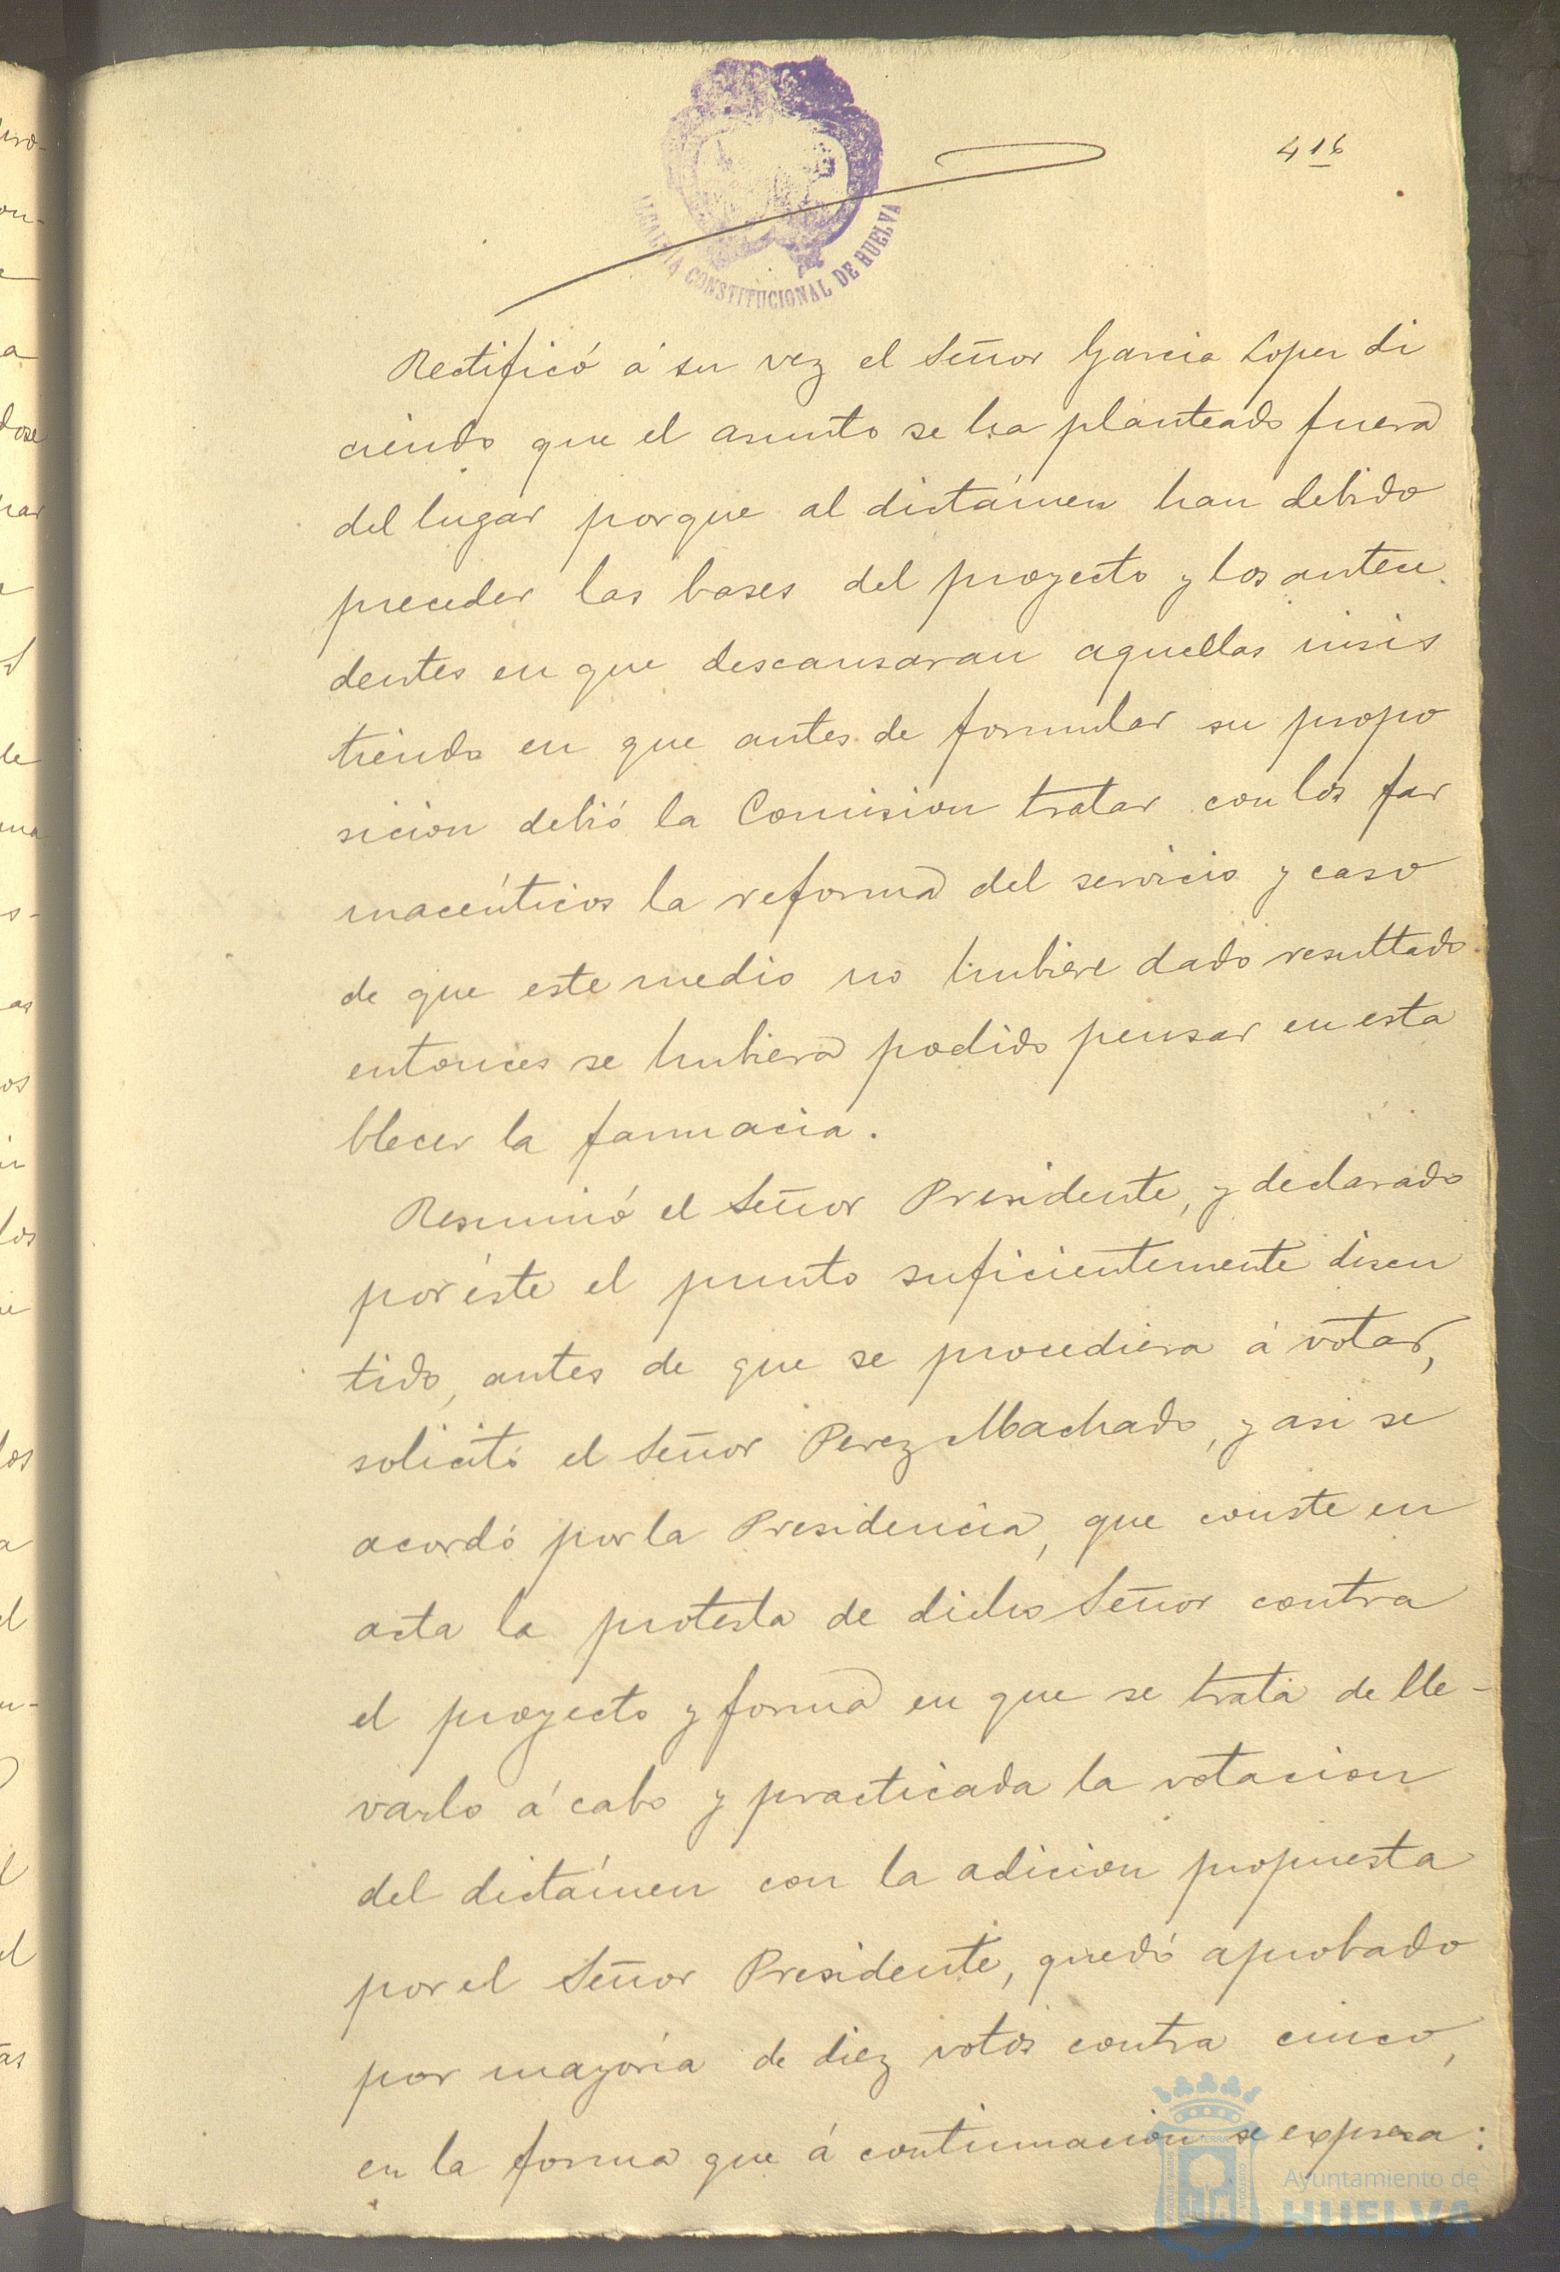 416
ALCALDIA CONSTITUCIONAL DE HUELVA
Rectificó á su vez el Señor Garcia Lopez di
ciendo que el asunto se ha planteado fuera
del lugar porque al dictámen han debido
preceder las bases del proyecto y los antece
dentes en que descansaran aquellas insis
tiendo en que antes de formular su propo
sicion debió la Comision tratar con los far
macéuticos la reforma del servicio y caso
de que este medio no hubiere dado resultado
entonces se hubiera podido pensar en esta
blecer la farmacia.
Resumió el Señor Presidente, y declarado
por éste el punto suficientemente discu
tido, antes de que se procediera á votar,
solicitó el Señor Perez Machado, y asi se
acordó por la Presidencia, que conste en
acta la protesta de dicho Señor contra
el proyecto y forma en que se trata de lle-
varlo á cabo y practicada la votacion
del dictámen con la adicion propuesta
por el Señor Presidente, quedó aprobado
por mayoría de diez votos contra cinco,
en la forma que á continuacion se expresa:
Ayuntamiento de
HUELVA